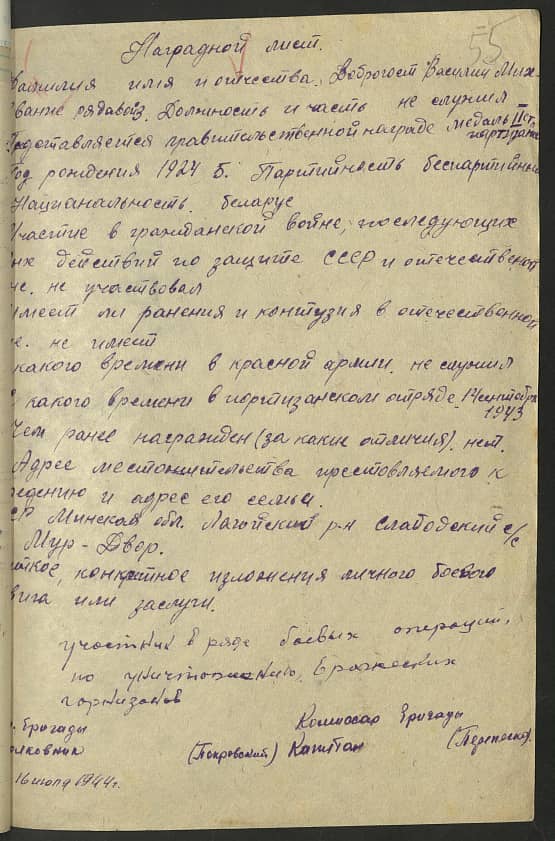 55
Наградной лист.
амилия имя и отчества. Доброгост Василий Мих
вание рядавой. Должность и часть не служил
Предоставляется правительственной награде медаль II ст.
партизана
Год рождения 1924 Б. Партийность беспартийный
Национальность. беларус
Участие в гражданской войне, последующих
ых действий по защите СССР и отечественой
не. не участвовал
Имеет ли ранения и контузия в отечественной
е. не имеет
какого времени в красной армии. не служил
С какого времени в портизанском отряде. 14 сентября
1943
Чем ранее награжден (за какие отличия). нет.
Адрес местожительства преставляемого к
едению и адрес его семьи.
СР Минская обл. Лагойский р-н Слабодский с/с
Мур-Двор.
аткое, конкретное изложения личного боевого
вига или заслуги.
участник в ряде боевых операций,
по уничтожению, вражеских
гарнизонов
р. бригады
Комиссар бригады
олковник
(Покровский) Капитан
16 июля 1944г.